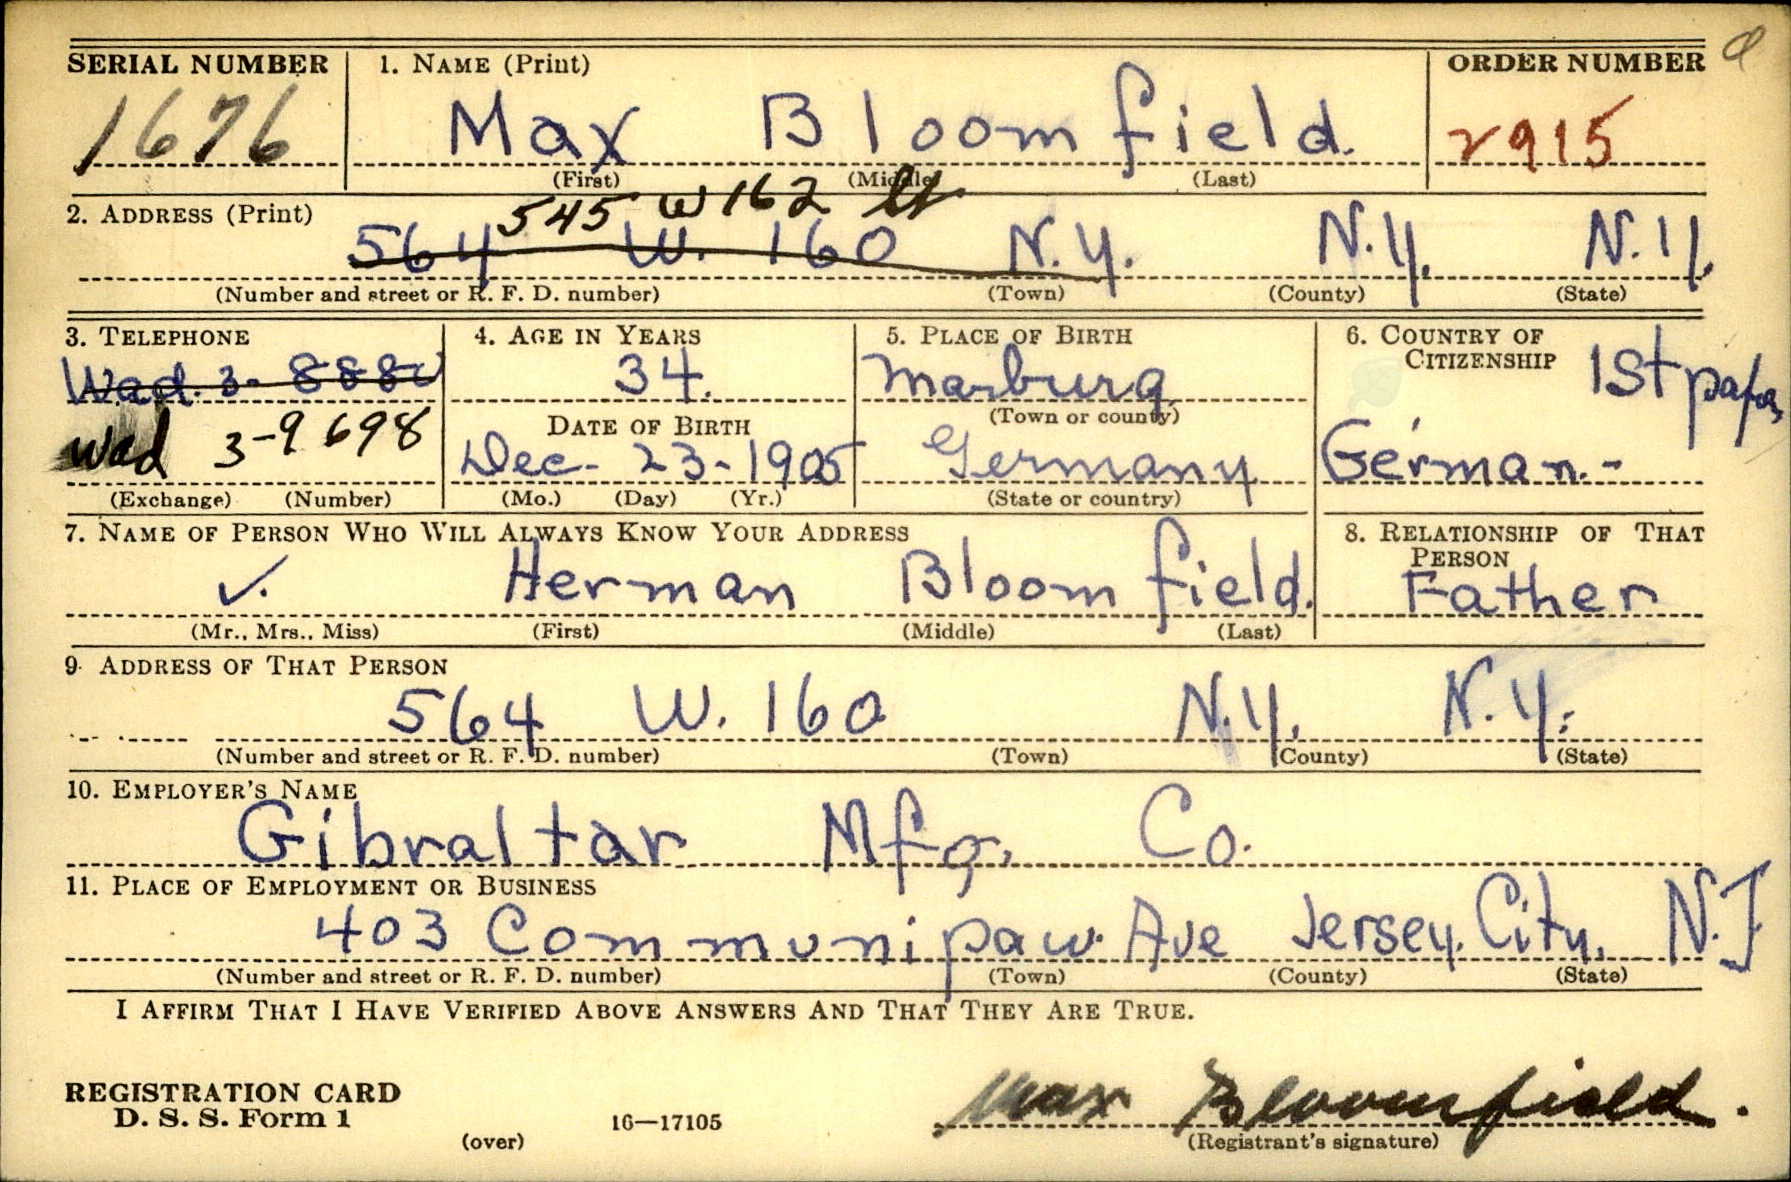 SERIAL NUMBER 1. NAME (Print) ORDER NUMBER
1676 Max Bloomfield. 2915
(First) (Middle) (Last)
545 W 162 St
2. ADDRESS (Print)
564 W. 160 N.Y. N.Y. N.Y.
(Number and street or R. F. D. number) (Town) (County) (State)
3. TELEPHONE 4. AGE IN YEARS 5. PLACE OF BIRTH 6. COUNTRY OF CITIZENSHIP
Wad. 3- 34. Marburg 1st papers
(Town or county)
DATE OF BIRTH
Wad 3-9698 Dec- 23-1905 Germany German.-
(Exchange) (Number) (Mo.) (Day) (Yr.) (State or country)
7. NAME OF PERSON WHO WILL ALWAYS KNOW YOUR ADDRESS 8. RELATIONSHIP OF THAT PERSON
✓. Herman Bloomfield. Father
(Mr., Mrs., Miss) (First) (Middle) (Last)
9. ADDRESS OF THAT PERSON
564 W. 160 N.Y. N.Y.
(Number and street or R. F. D. number) (Town) (County) (State)
10. EMPLOYER'S NAME
Gibraltar Mfg. Co.
11. PLACE OF EMPLOYMENT OR BUSINESS
403 Communipaw Ave Jersey City, N.J
(Number and street or R. F. D. number) (Town) (County) (State)
I AFFIRM THAT I HAVE VERIFIED ABOVE ANSWERS AND THAT THEY ARE TRUE.
REGISTRATION CARD
D. S. S. Form 1 16—17105 Max Bloomfield.
(over) (Registrant's signature)